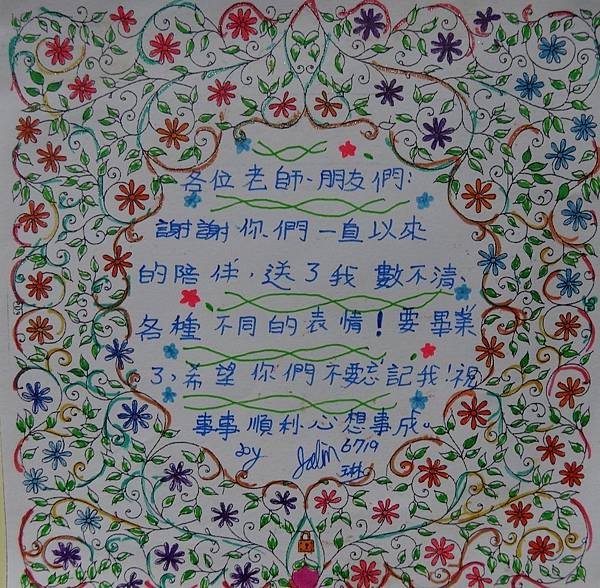 各位老師、朋友們:
謝謝你們一直以來
的陪伴,送了我數不清、
各種不同的表情!要畢業
了,希望你們不要忘記我!祝
事事順利心想事成。
by 6/19